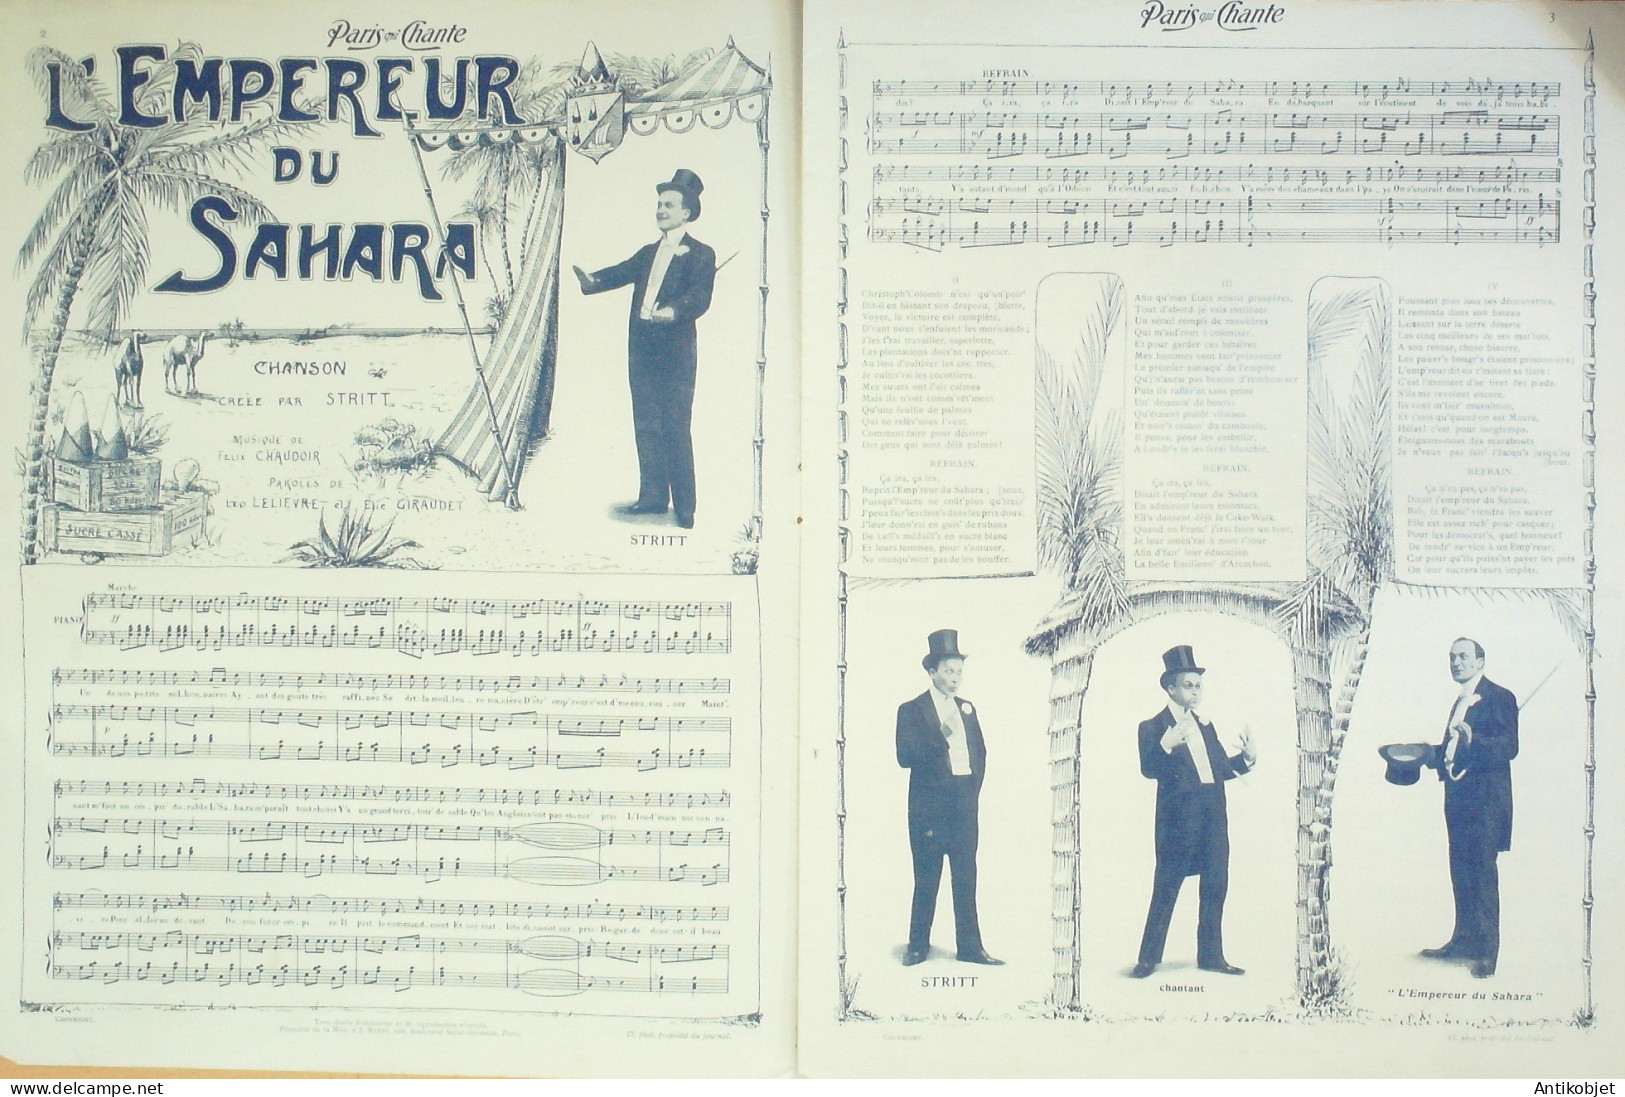 2
Paris qui Chante
L'EMPEREUR
DU
SAHARA
CHANSON
CRÉÉE PAR STRITT
MUSIQUE DE
FÉLIX CHAUDOIR
PAROLES DE
LÉO LELIEVRE et Élie GIRAUDET
SUCRE
SCIÉ
SUCRE CASSÉ
STRITT
Marche
PIANO
Un de nos petits mil.lion.naires Ay . ant des goûts très raffi.nés Se dit: la meil.leu . re ma.nière D'êtr' emp'reur c'est d'me cou.ron . ner Maint'.
nant m'faut un em . pir' du.rable L'Sa.hara m'paraît tout choisi Y'a un grand terri . toir' de sable Qu'les Anglais n'ont pas
De son futur em . pi re Il prit le command . ment Et ses mat . lots di.saient sur . pris Regar.de donc est-il beau
COPYRIGHT.
Cl. phot. propriété du journal.
Paris qui Chante
3
REFRAIN
dis! Ça i.ra, ça i.ra Di.sait l'Emp'reur du Saha.ra En dé.barquant sur l'continent Je vois dé.jà trois ha.bi .
tants, Y'a autant d'mond' qu'à l'Odéon Et c'est tout aus.si fo.li.chon Y'a mêm' des chameaux dans l'pa . ys On s'croirait dans l'cœur de Pa . ris.
II
Christoph' Colomb n'est qu'un' poir'
Dit-il en hissant son drapeau, [blette,
Voyez, la victoire est complète,
D'vant nous s'enfuient les moricauds;
J'les f'rai travailler, saperlotte,
Les plantations doiv'nt rapporter.
Au lieu d'cultiver les cocottes,
Je cultiv'rai les cocotiers.
Mes sujets ont l'air calmes
Mais ils n'ont comm' vêt'ment
Qu'une feuille de palmes
Qui se relèv' sous l'vent.
Comment faire pour décorer
Des gens qui sont déjà palmés!
REFRAIN.
Ça ira, ça ira,
Reprit l'Emp'reur du Sahara; [sous,
Puisqu' l'sucre ne coût' plus qu'treiz'
J'peux fair' les chos's dans les prix doux.
J'leur donn'rai en guis' de rubans
De bell's médaill's en sucre blanc
Et leurs femmes, pour s'amuser,
Ne manqu'ront pas de les bouffer.
III
Afin qu'mes États soient prospères,
Tout d'abord je vais instituer
Un sérail rempli de moukères
Qui m'aid'ront à coloniser.
Et pour garder ces hétaïres
Mes hommes vont fair' prisonnier
Le premier eunuqu' de l'empire
Qu'j'n'aurai pas besoin d'rembourser
Puis ils rafler'nt sans peine
Un' douzain' de houris
Qu'étaient plutôt vilaines
Et noir's comm' du cambouis;
Il pensa, pour les embellir,
A Londr's je les ferai blanchir.
REFRAIN.
Ça ira, ça ira,
Disait l'emp'reur du Sahara
En admirant leurs estomacs,
Ell's dansent déjà le Cake-Walk.
Quand en Franc' j'irai faire un tour,
Je leur amèn'rai à mon r'tour
Afin d'fair' leur éducation
La belle Emilienn' d'Arcachon.
IV
Poussant plus loin ses découvertes,
Il remonta dans son bateau
Laissant sur la terre déserte
Les cinq meilleurs de ses mat'lots.
A son retour, chose bizarre,
Les pauvr's bougr's étaient prisonniers;
L'emp'reur dit en r'misant sa tiare:
C'est l'moment d'se tirer des pieds.
S'ils me revoient encore,
Ils vont m'fair' musulman,
Et j'sais qu'quand on est Maure,
Hélas! c'est pour longtemps.
Éloignons-nous des marabouts
Je n'veux pas fair' l'Jacqu's jusqu'au
[bout.
REFRAIN.
Ça n'va pas, ça n'va pas,
Disait l'emp'reur du Sahara,
Bah, la Franc' viendra les sauver
Elle est assez rich' pour casquer;
Pour les démocrat's, quel honneur!
De rendr' service à un Emp'reur,
Car pour qu'ils puiss'nt payer les pots
On leur sucrera leurs impôts.
STRITT
chantant
" L'Empereur du Sahara "
COPYRIGHT.
Cl. phot. propriété du journal.
Antikobjet